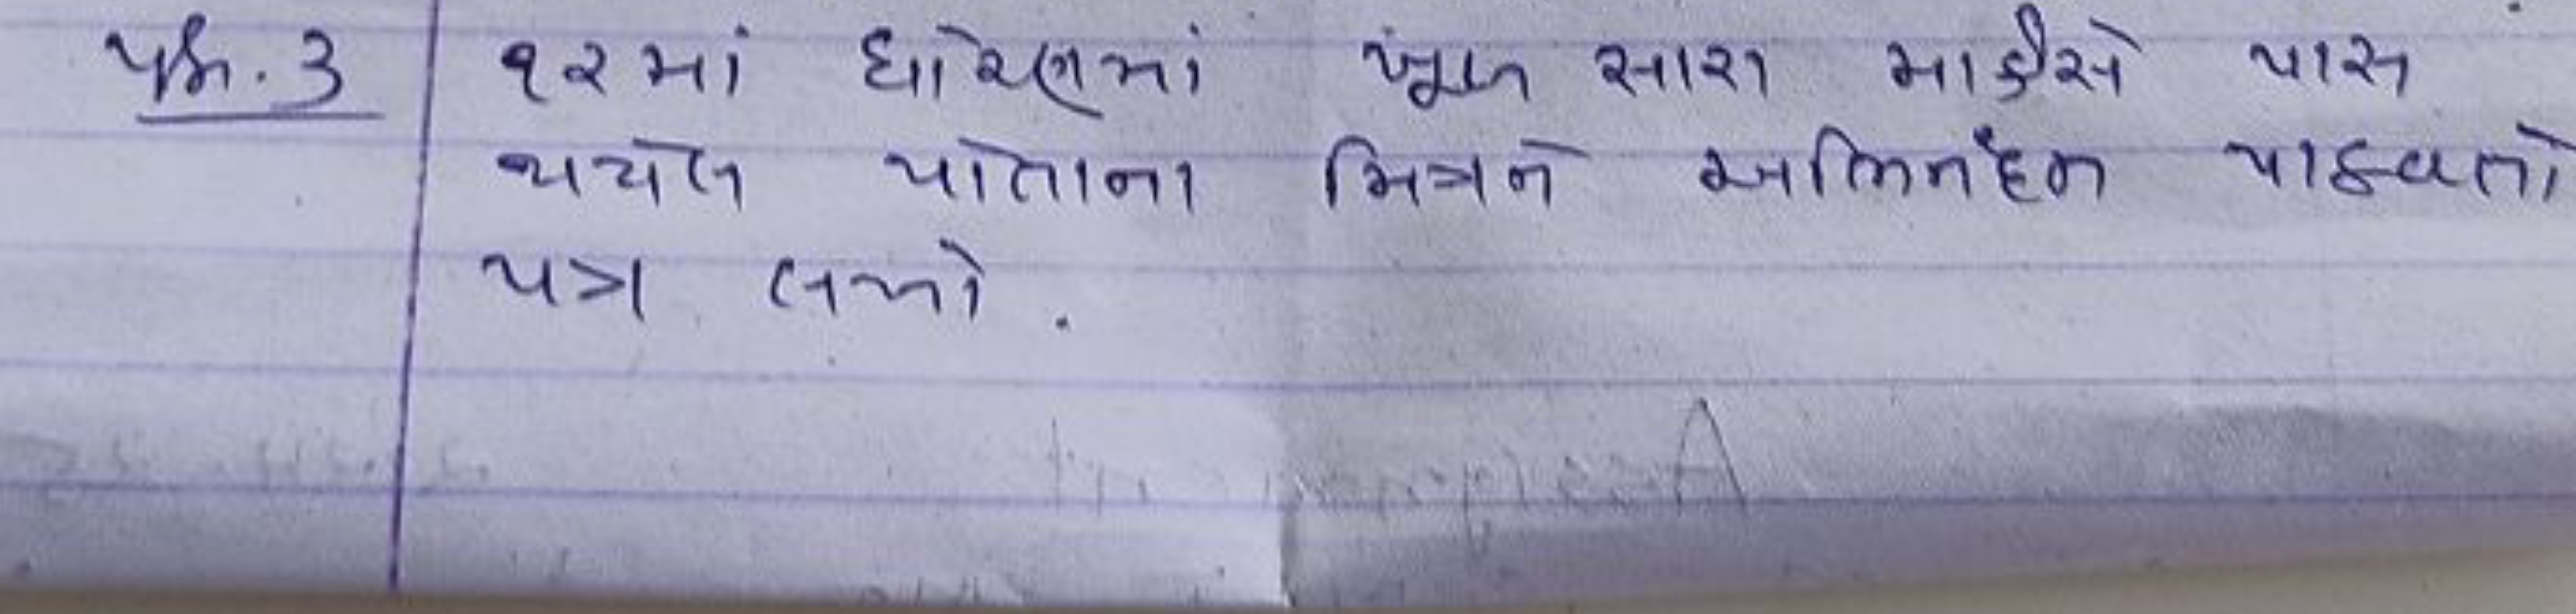 પ્રશ્ન.3 ૧૨માં ધોરણમાં ખૂબ સારા માર્કસે પાસ
થયેલ પોતાના મિત્રને અભિનંદન પાઠવતો
પત્ર લખો.